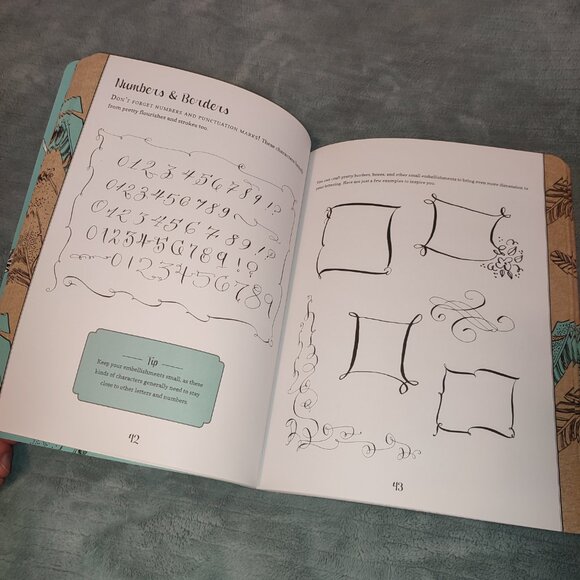 Numbers & Borders
Don't forget numbers and punctuation marks! These characters benefit
from pretty flourishes and strokes too.
0123 456789!?
0123456789
0123456789!?
0123456789!?
0123456789
Tip
Keep your embellishments small, as these
kinds of characters generally need to stay
close to other letters and numbers.
42
You can craft pretty borders, boxes, and other small embellishments to bring even more dimension to
your lettering. Here are just a few examples to inspire you.
43